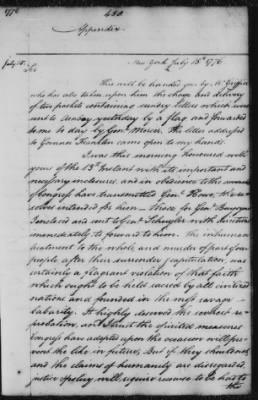 1776
430
Appendix
New York July 15th 1776
July 15.
Sir
This will be handed you by Mr. Griffin
who has also taken upon him the charge and delivery
of two packets containing sundry letters which were
sent to Amboy yesterday by a flag and forwarded
to me to day by Genl. Mercer. The letter addressed
to Governor Franklin came open to my hands.
I was this morning honoured with
yours of the 13th Instant with its important and
necessary enclosures, and in obedience to the commands
of Congress have transmitted Genl. Howe the re-
solves intended for him. Those for Genl. Burgoyne
I enclosed and sent to Genl. Schuyler with directions
immediately to forward to him. The inhuman
treatment to the whole, and murder of part of our
people after their surrender & capitulation, was
certainly a flagrant violation of that faith
which ought to be held sacred by all civilized
nations and founded in the most savage
barbarity. It highly deserved the severest re-
probation, and I trust the spirited measures
Congress have adopted upon the occasion will pre-
vent the like in future; But if they should not
and the claims of humanity are disregarded,
justice & policy will require recourse to be had to
the